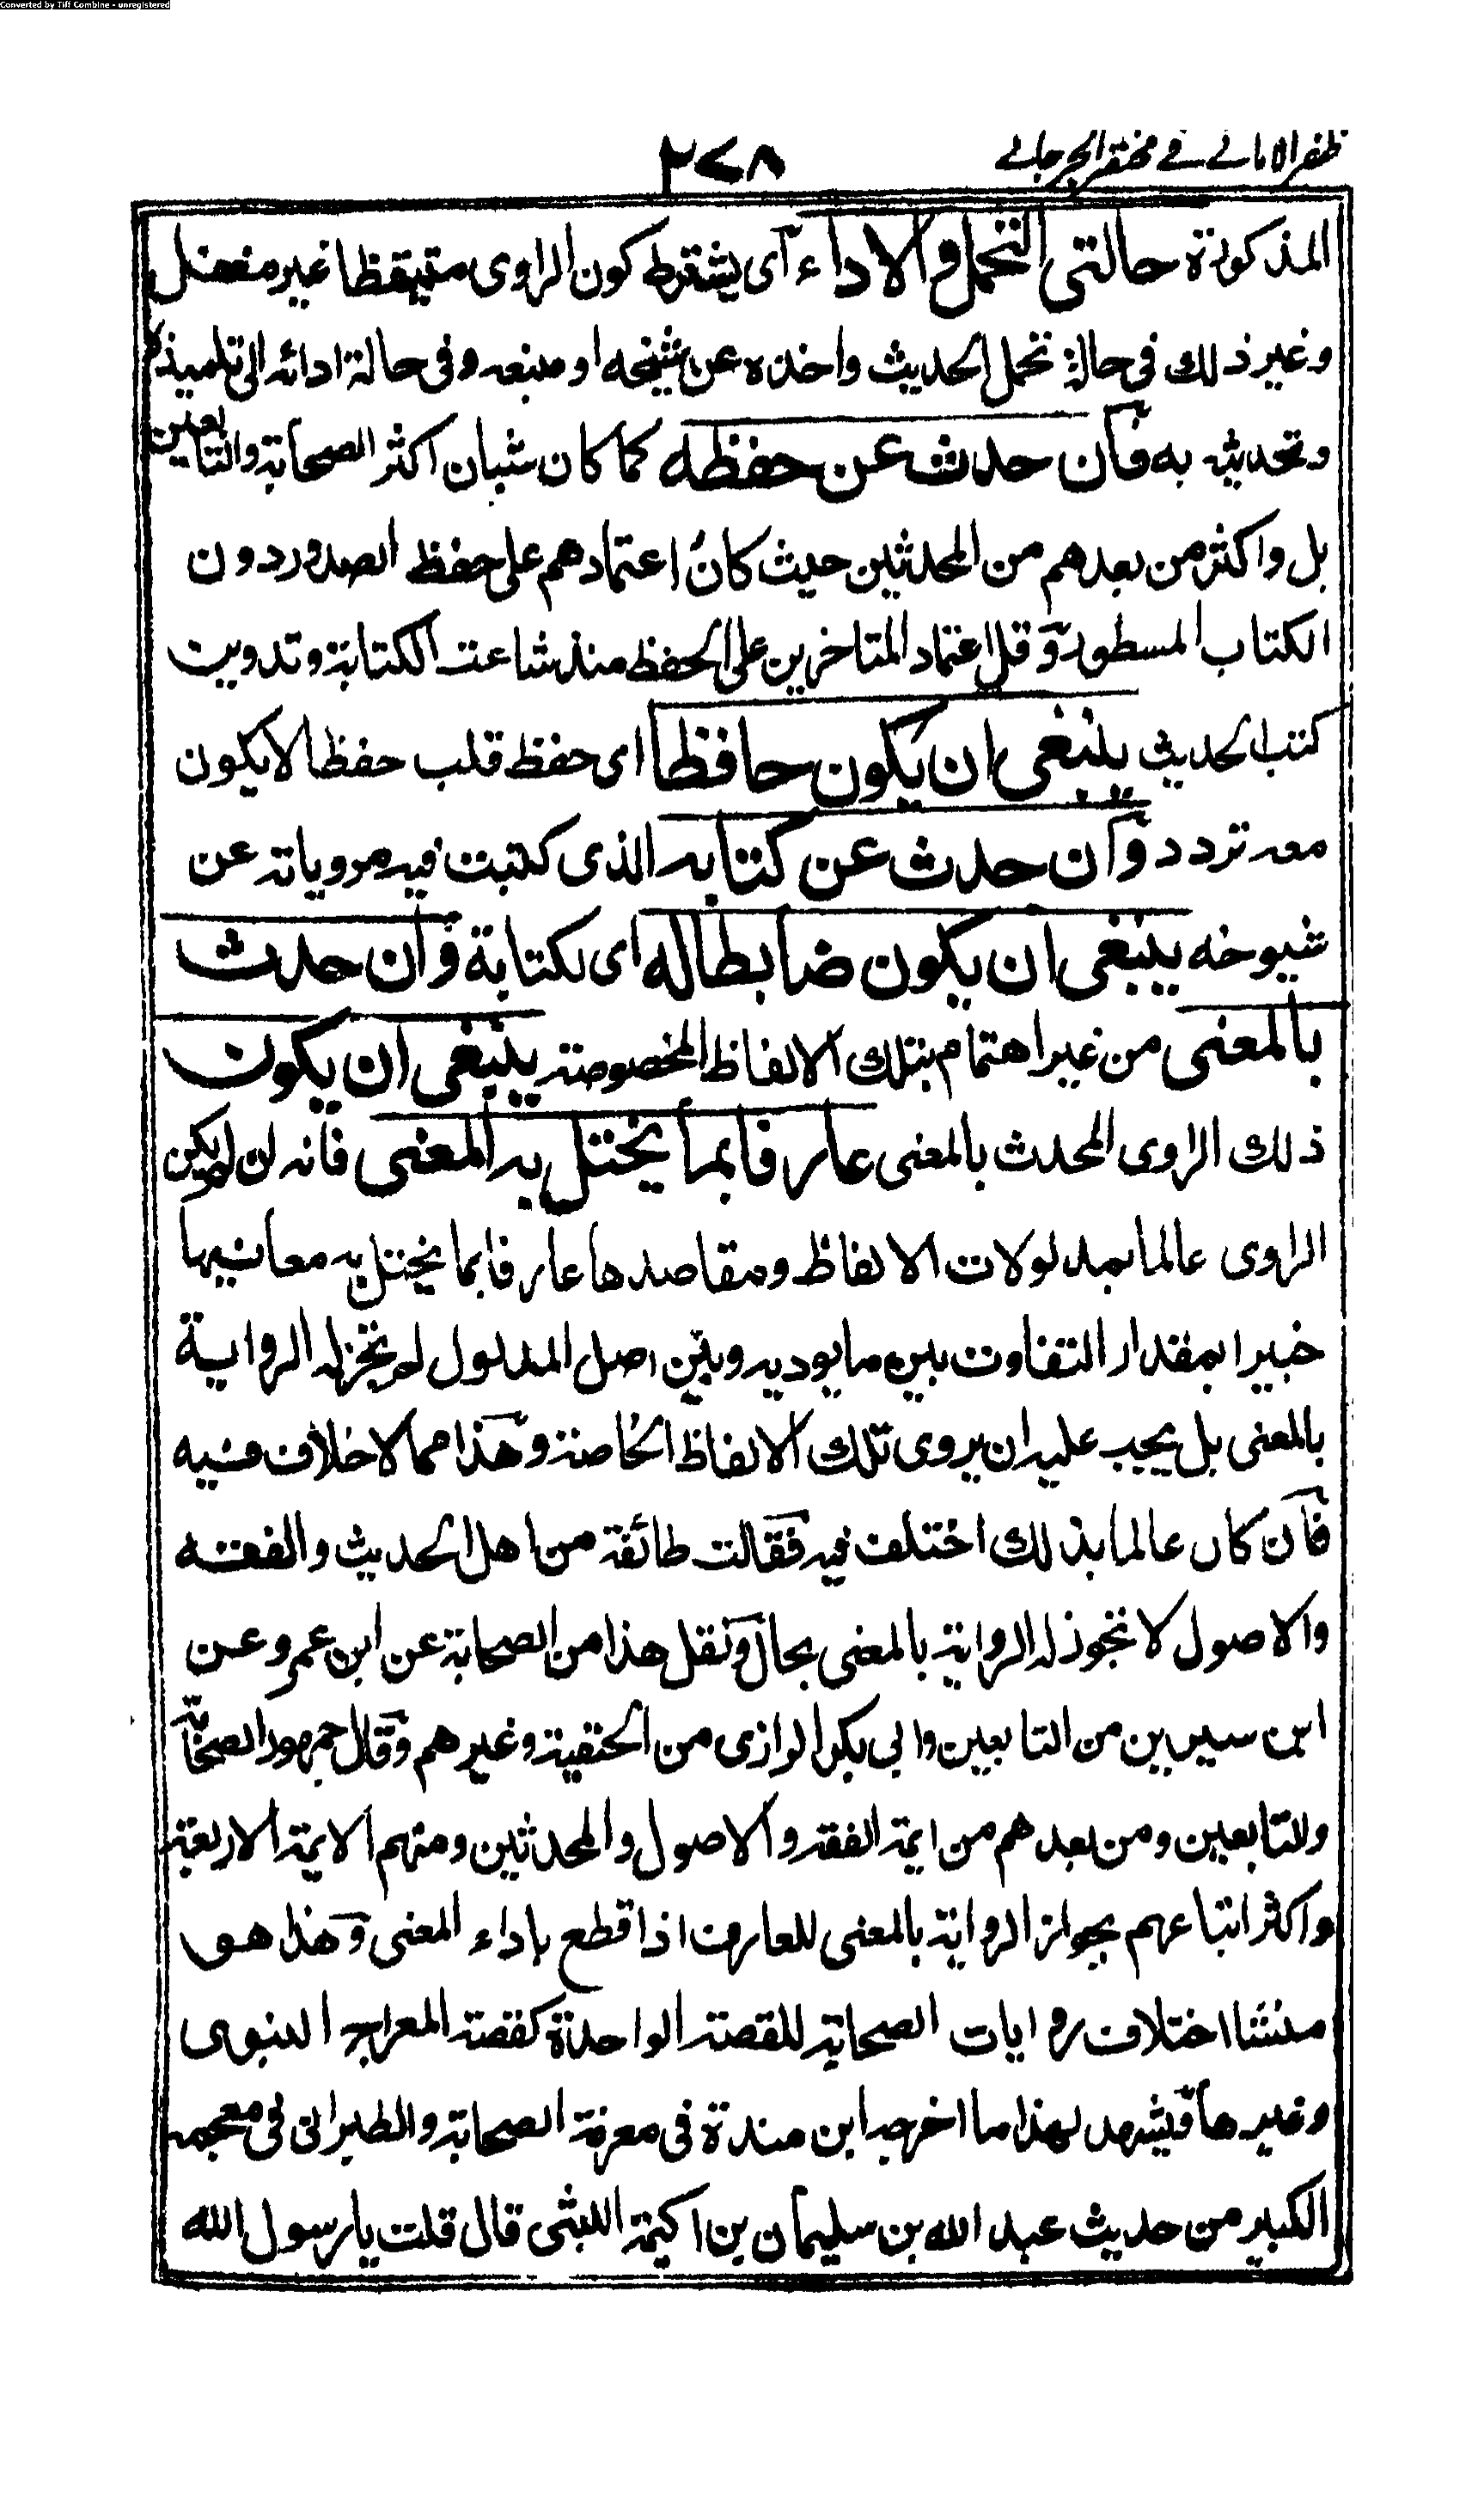 Converted by Tiff Combine - unregistered
ظفر الامانے فے مختصر الجرجانے
٢٧٨
المذكورة حالتى التحمل والاداء آى يشترط كون الراوى متيقظا غير مغفل
وغير ذلك فى حالة تحمل الحديث واخذه عن شيخه او منبعه وفى حالة ادائه الى تلميذه
وتحديثه به فان حدث عن حفظه كما كان شبان اكثر الصحابة والتابعين
بل واكثر من بعدهم من المحدثين حيث كان اعتمادهم على حفظ الصدور دون
الكتاب المسطور وقل اعتماد المتاخرين على الحفظ منذ شاعت الكتابة وتدوين
كتب الحديث ينبغى ان يكون حافظا اى حفظ قلب حفظا لا يكون
معه تردد وان حدث عن كتابه الذى كتبت فيه مروياته عن
شيوخه ينبغى ان يكون ضابطا له اى لكتابة وان حدث
بالمعنى من غير اهتمام بتلك الالفاظ المخصوصة ينبغى ان يكون
ذلك الراوى المحدث بالمعنى عارفا بما يختل به المعنى فانه ان لم يكن
الراوى عالما بمدلولات الالفاظ ومقاصدها عارفا بما يختل به معانيها
خبيرا بمقدار التفاوت بين ما يوديه وبين اصل المدلول لم تجز له الرواية
بالمعنى بل يجب عليه ان يروى تلك الالفاظ الخاصة وهذا مما لا خلاف فيه
فان كان عالما بذلك اختلف فيه فقالت طائفة من اهل الحديث والفقه
والاصول لا تجوز له الرواية بالمعنى بحال ونقل هذا من الصحابة عن ابن عمر وعن
ابن سيرين من التابعين وابى بكر الرازى من الحنفية وغيرهم وقال جمهور الصحابة
والتابعين ومن بعدهم من ايمة الفقه والاصول والمحدثين ومنهم الايمة الاربعة
واكثر اتباعهم بجواز الرواية بالمعنى للعارف اذا قطع باداء المعنى وهذا هو
منشا اختلاف روايات الصحابة للقصة الواحدة كقصة المعراج النبوى
وغيرها ويشهد لهذا ما اخرجه ابن مندة فى معرفة الصحابة والطبرانى فى معجمه
الكبير من حديث عبد الله بن سليمان بن اكيمة الليثى قال قلت يا رسول الله